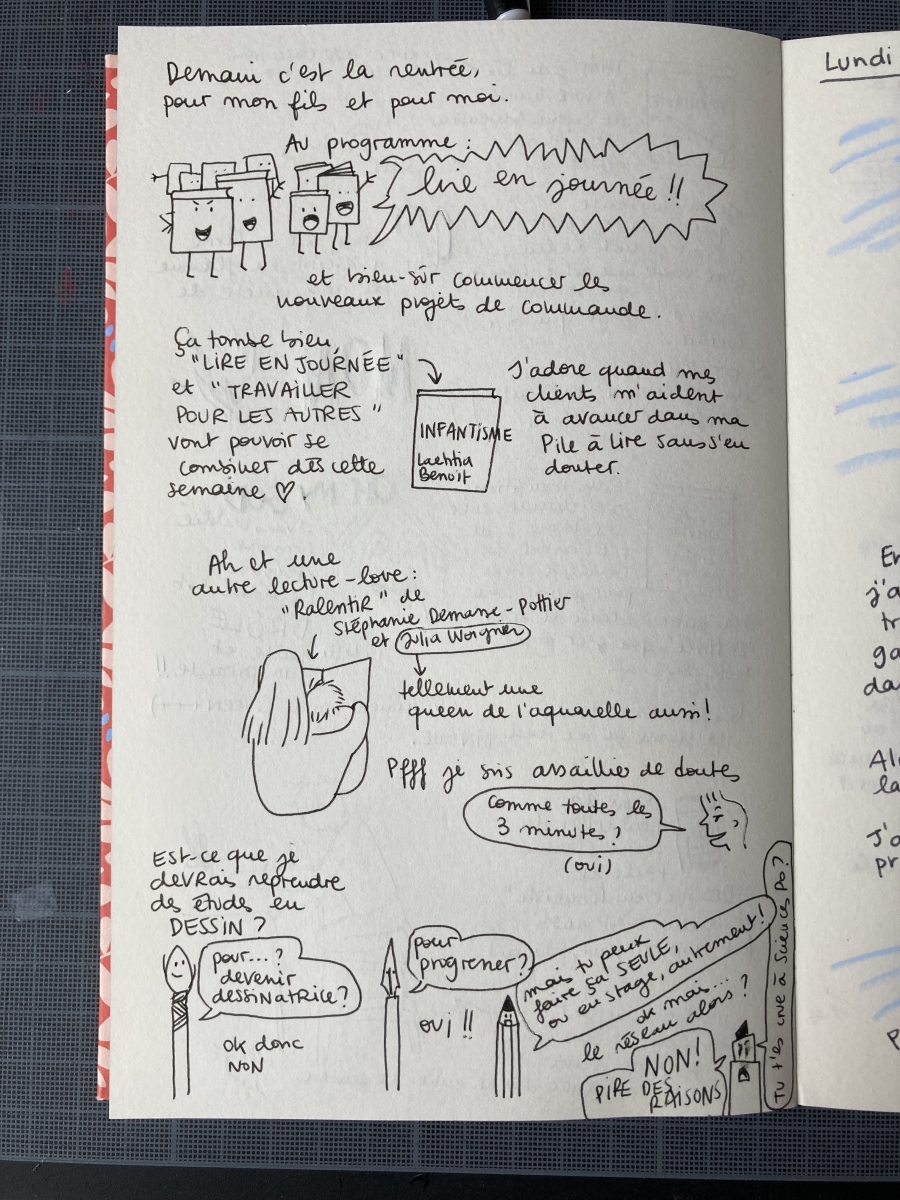 Demain c'est la rentrée,
pour mon fils et pour moi.
Au programme :
lire en journée !!
et bien-sûr commencer les
nouveaux projets de commande.
Ça tombe bien,
"LIRE EN JOURNÉE"
et "TRAVAILLER
POUR LES AUTRES"
vont pouvoir se
combiner dès cette
semaine ♡.
INFANTISME
Laehtia
Benoit
J'adore quand mes
clients m'aident
à avancer dans ma
Pile à lire sans s'en
douter.
Ah et une
autre lecture-love :
"RalentiR" de
Stéphanie Demasse-Pottier
et Julia Woignier
tellement une
queen de l'aquarelle aussi !
Pfff je suis assaillie de doutes
comme toutes les
3 minutes ?
(oui)
Est-ce que je
devrais reprendre
des études en
DESSIN ?
pour...?
devenir
dessinatrice ?
ok donc
NON
pour
progresser ?
oui !!
mais tu peux
faire ça SEULE,
ou en stage, autrement !
ok mais...
le réseau alors ?
NON !
PIRE DES
RAISONS
Tu t'es crue à Sciences Po ?
Lundi
En
j'a
tr
ga
da
Al
la
J'a
pr
P